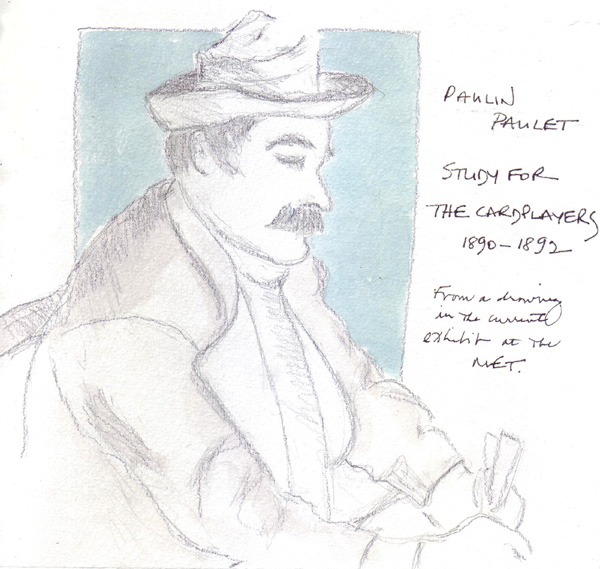 PAULIN
PAULET
STUDY FOR
THE CARDPLAYERS
1890-1892
From a drawing
in the current
exhibit at the
MET.